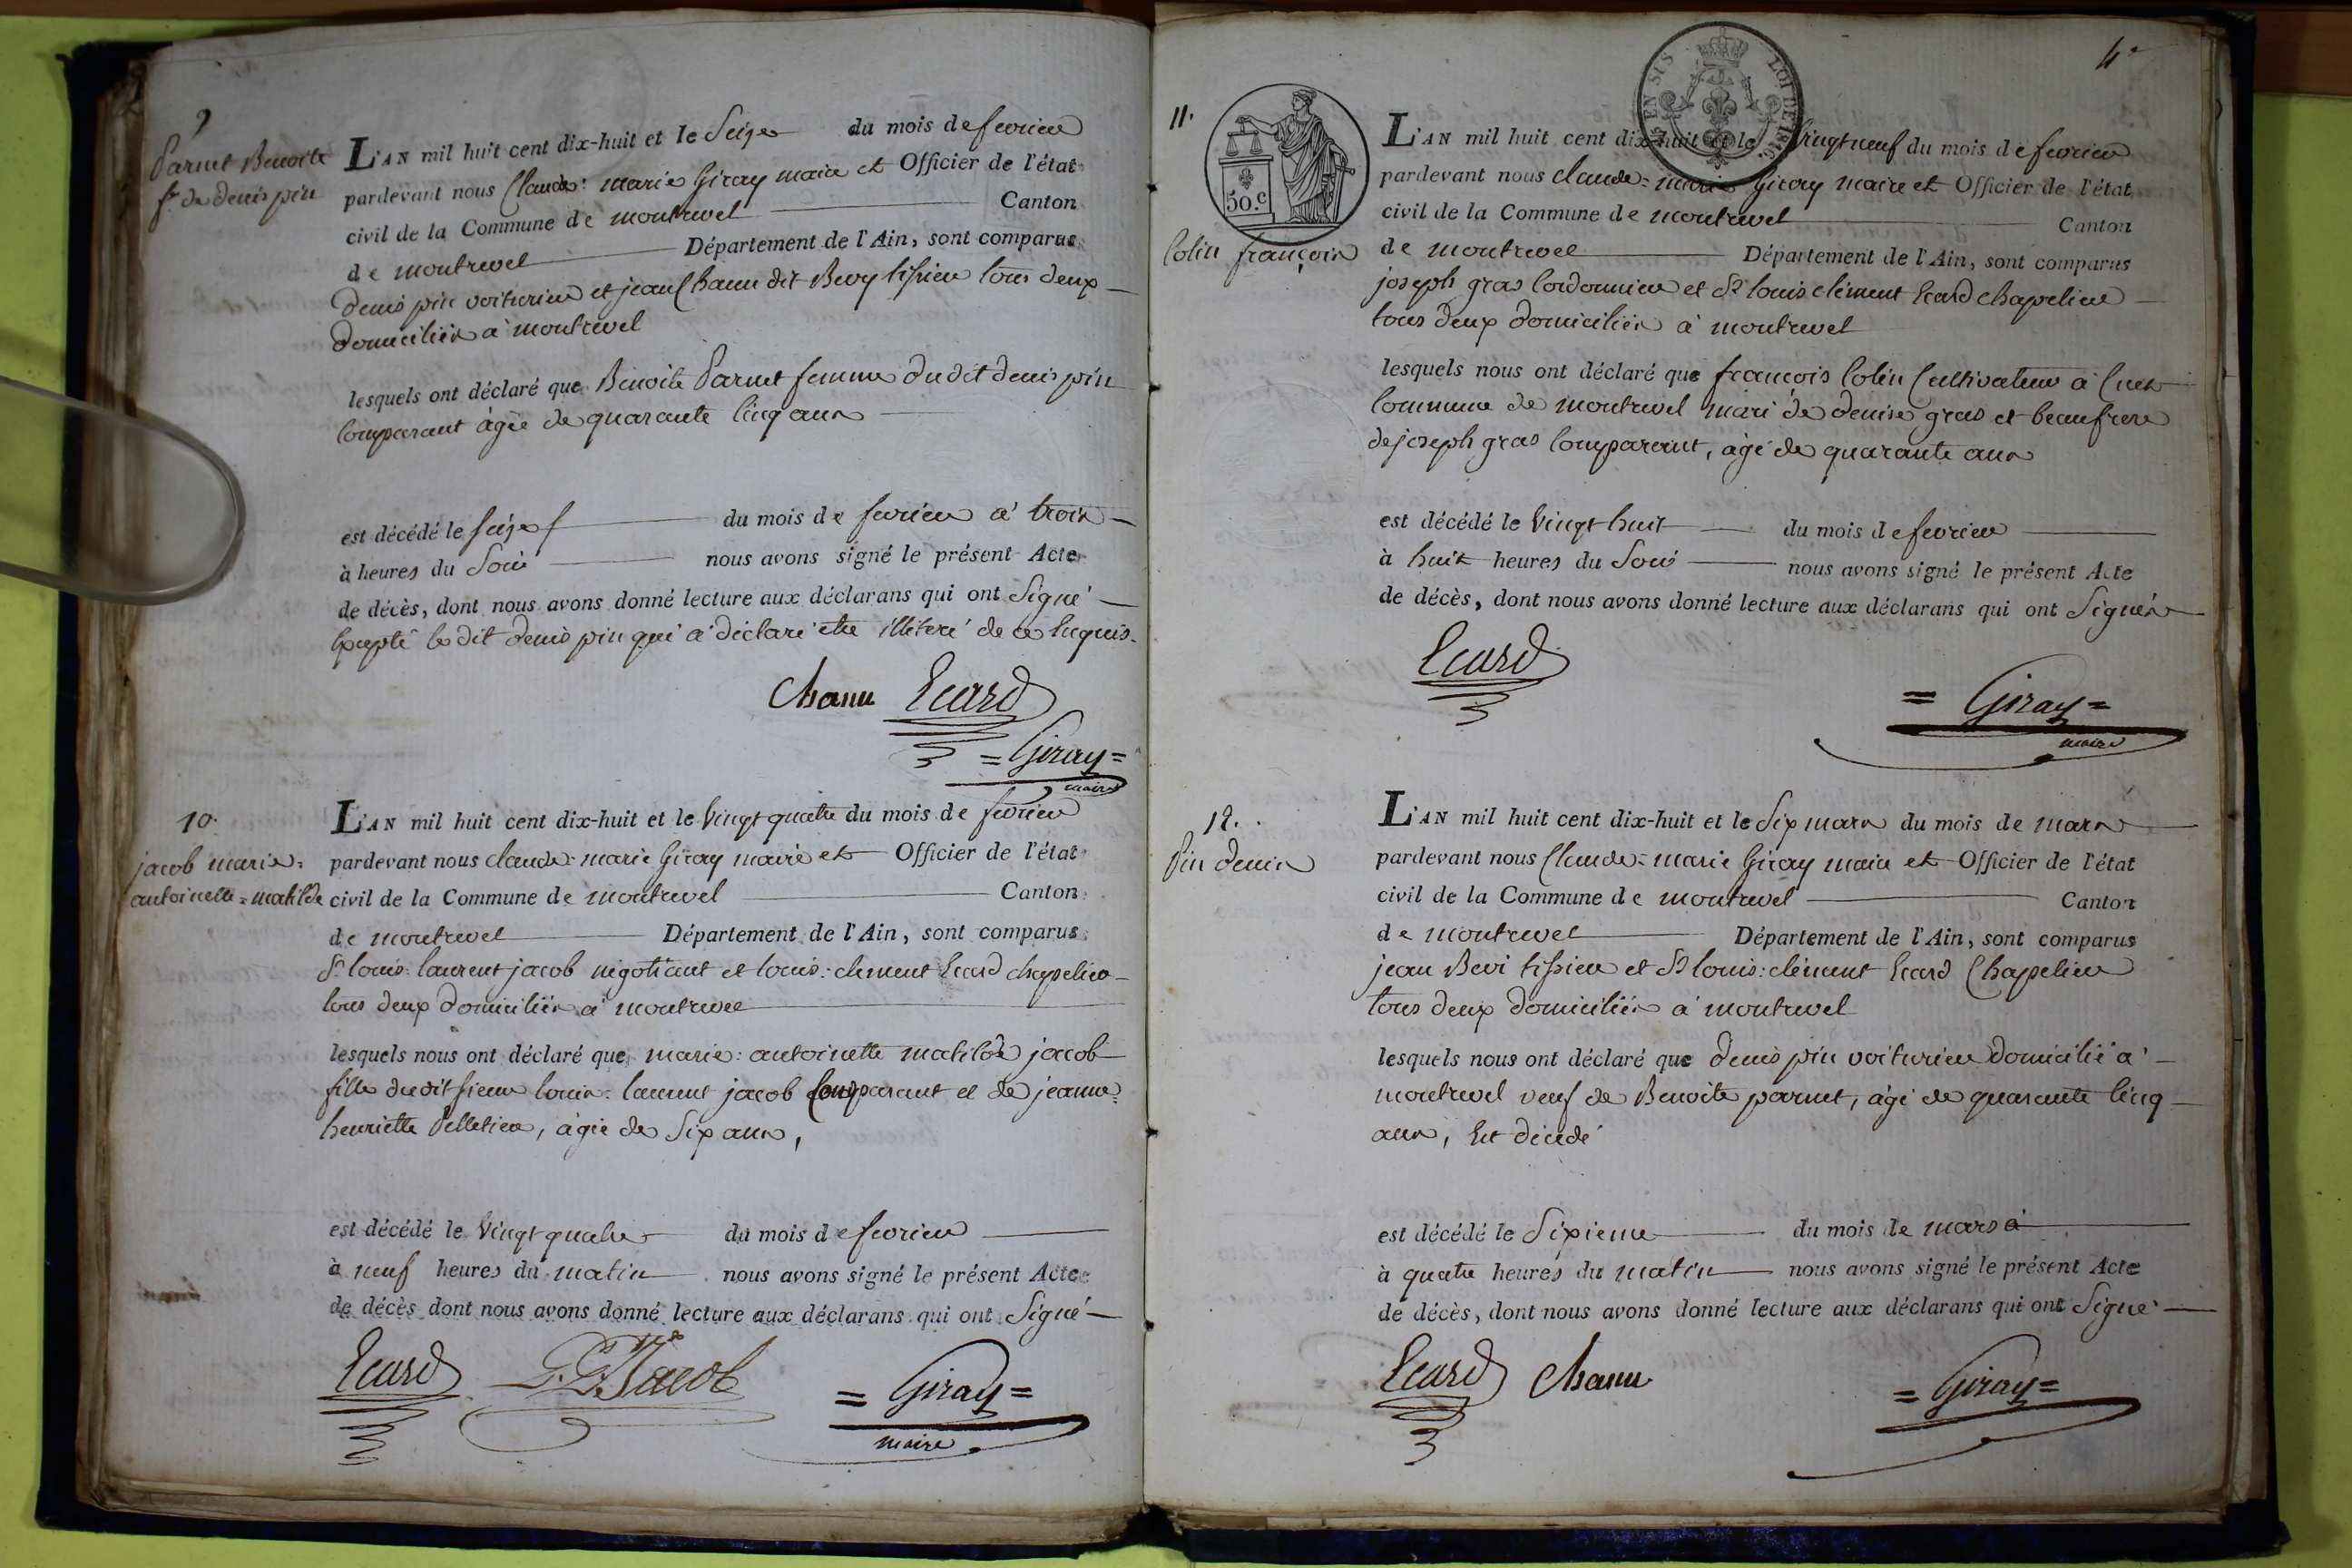 9
Parnet Benoite
fe de denis pin
L'AN mil huit cent dix-huit et le Seize du mois de fevrier
pardevant nous Claude: marie Giray maire et Officier de l'état
civil de la Commune de montrevel Canton
de montrevel Département de l'Ain, sont comparus
denis pin voiturier et jean Chanu dit Bevy tissier tous deux
domiciliés à montrevel
lesquels ont déclaré que Benoite Parnet femme dudit denis pin
Comparant àgée de quarante Cinq ans
est décédé le seize du mois de fevrier a' trois
à heures du Soir nous avons signé le présent Acte
de décès, dont nous avons donné lecture aux déclarans qui ont Signé
Excepté le dit denis pin qui a déclaré etre illiteré de ce Enquis.
Chanu Ecard
= Giray =
maire
10.
jacob marie:
antoinette = matilde
L'AN mil huit cent dix-huit et le Vingt quatre du mois de fevrier
pardevant nous claude: marie Giray maire et Officier de l'état
civil de la Commune de montrevel Canton
de montrevel Département de l'Ain, sont comparus
Sr louis: laurent jacob négotiant et louis: clement Ecard chapelier
tous deux domiciliés a' montrevel
lesquels nous ont déclaré que marie: antoinette matilde jacob
fille dudit sieur louis: laurent jacob Comparant et de jeanne:
henriette Pelletier, àgée de Six ans,
est décédé le Vingt quatre du mois de fevrier
à neuf heures du matin nous avons signé le présent Acte
de décès dont nous avons donné lecture aux déclarans qui ont Signé
Ecard Jacob = Giray =
maire
4e
11.
50.c
LOI DE 1816
Colin françois
L'AN mil huit cent dix-huit et le Vingt neuf du mois de fevrier
pardevant nous claude: marie Giray maire et Officier de l'état
civil de la Commune de montrevel Canton
de montrevel Département de l'Ain, sont comparus
joseph gras Cordonnier et Sr louis clément Ecard chapelier
tous deux domiciliés à montrevel
lesquels nous ont déclaré que françois Colin Cultivateur à Cuet
Commune de montrevel mari de denise gras et beaufrere
de joseph gras Comparant, àgé de quarante ans
est décédé le Vingt huit du mois de fevrier
à huit heures du Soir nous avons signé le présent Acte
de décès, dont nous avons donné lecture aux déclarans qui ont Signés
Ecard
= Giray =
maire
12.
Pin denis
L'AN mil huit cent dix-huit et le Six mars du mois de mars
pardevant nous Claude: marie Giray maire et Officier de l'état
civil de la Commune de montrevel Canton
de montrevel Département de l'Ain, sont comparus
jean Bevi tissier et Sr louis: clément Ecard Chapelier
tous deux domiciliés à montrevel
lesquels nous ont déclaré que denis pin voiturier domicilié a'
montrevel veuf de Benoite parnet, àgé de quarante Cinq
ans, Est décédé
est décédé le Sixieme du mois de mars à
à quatre heures du matin nous avons signé le présent Acte
de décès, dont nous avons donné lecture aux déclarans qui ont Signé
Ecard Chanu
= Giray =